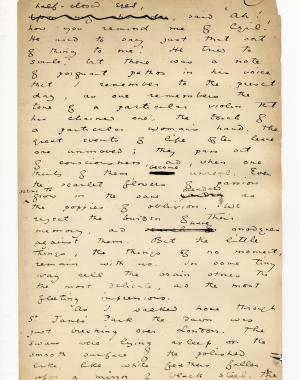 half-closed eyes,
said 'Ah!
how you remind me of Cyril.
He used to say just that sort
of thing to me.' He tried to
smile, but there was a note
of poignant pathos in his voice
that I remember to the present
day, as one remembers the
tone of a particular violin that
has charmed one, the touch of
a particular woman's hand. The
great events of life often leave
one unmoved; they pass out
of consciousness, and, when one
thinks of them, become unreal. Even
the scarlet flowers of passion
seem to grow in the same meadow as
the poppies of oblivion. We
reject the burden of their
memory, and have anodynes
against them. But the little
things, the things of no moment,
remain with us. In some tiny
ivory cell the brain stores the
most delicate, and the most
fleeting impressions.
As I walked home through
St James's Park the dawn was
just breaking over London. The
swans were lying asleep on the
smooth surface of the polished
lake, like white feathers fallen
upon a mirror of black steel. The